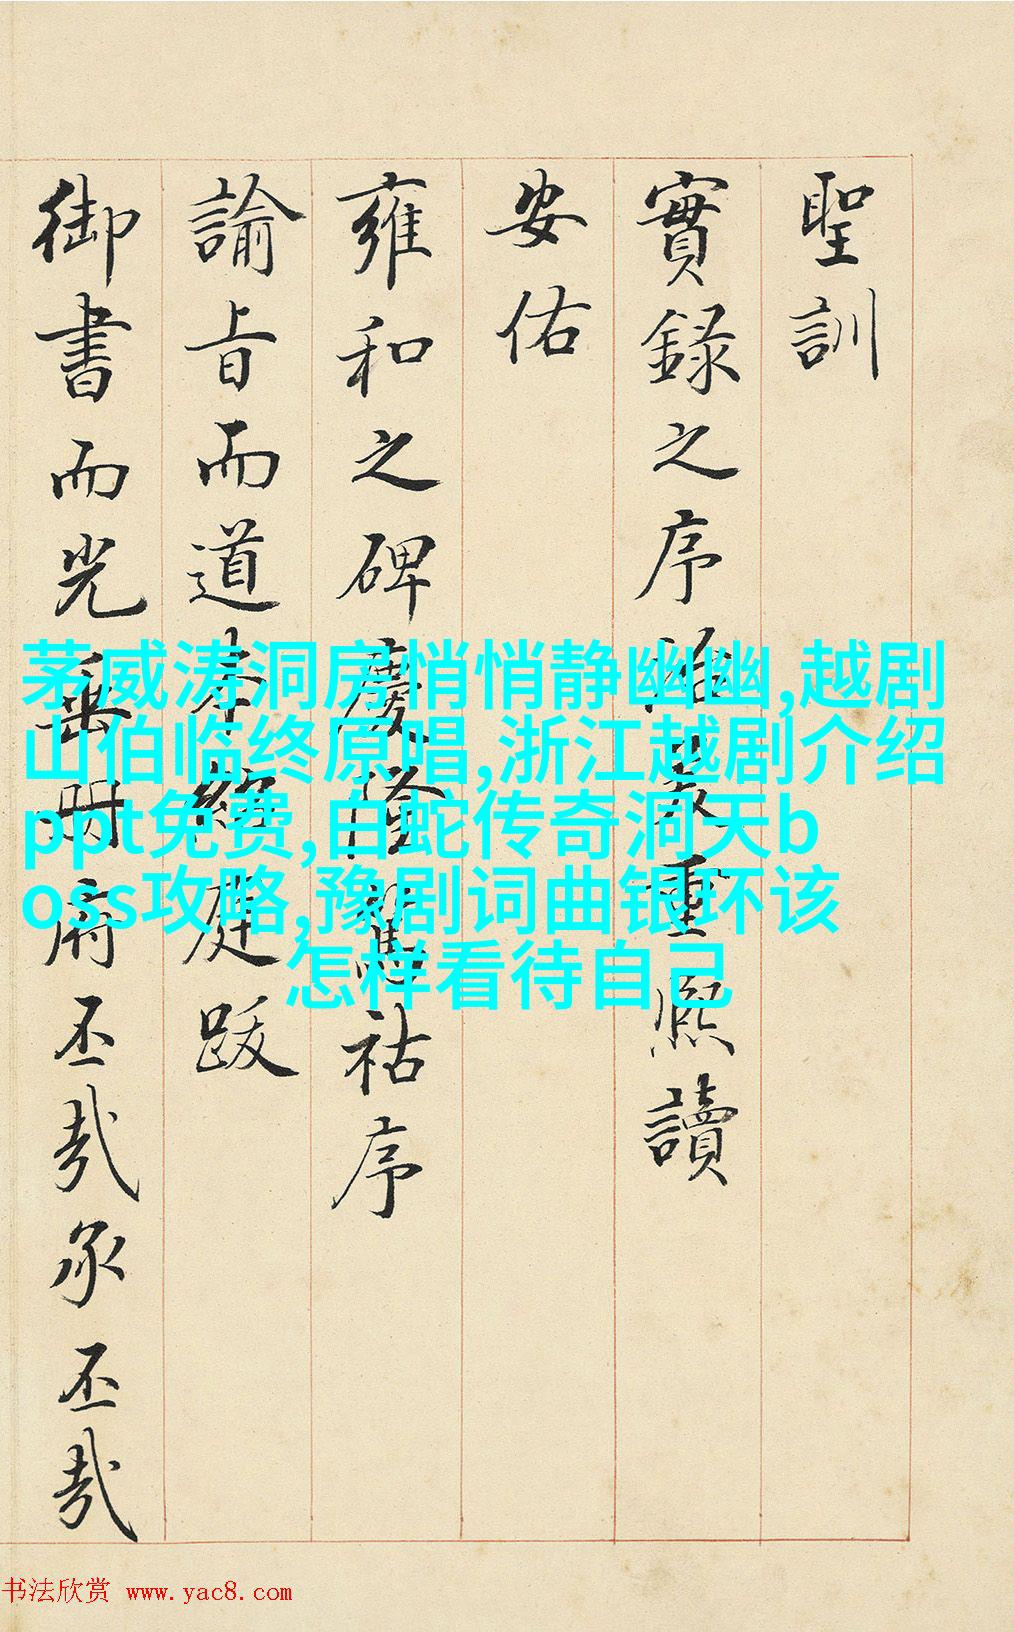 聖訓
實錄之序重熙讀
安佑
雍和之碑慶隆祜序
諭旨而道本經庭跋
御書而光垂冊府丕哉承丕哉
茅威涛洞房悄悄静幽幽,越剧
山伯临终原唱,浙江越剧介绍
ppt免费,白蛇传奇洞天b
oss攻略,豫剧词曲银环该
怎样看待自己
书法欣赏 www.yac8.com